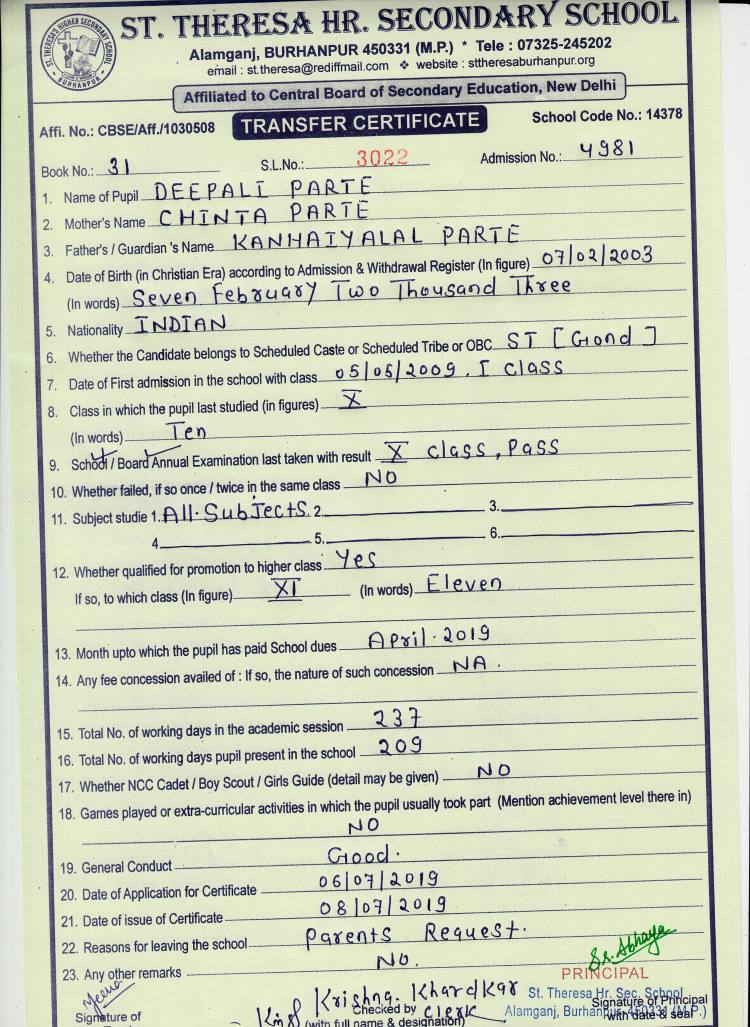 ST. THERESA HR. SECONDARY SCHOOL
ST. THERESA'S HIGHER SECONDARY SCHOOL
BURHANPUR
Alamganj, BURHANPUR 450331 (M.P.) * Tele : 07325-245202
email : st.theresa@rediffmail.com ❖ website : sttheresaburhanpur.org
Affiliated to Central Board of Secondary Education, New Delhi
Affi. No.: CBSE/Aff./1030508 TRANSFER CERTIFICATE School Code No.: 14378
Book No.: 31 S.L.No.: 3022 Admission No.: 4981
1. Name of Pupil DEEPALI PARTE
2. Mother's Name CHINTA PARTE
3. Father's / Guardian 's Name KANHAIYALAL PARTE
4. Date of Birth (in Christian Era) according to Admission & Withdrawal Register (In figure) 07/02/2003
(In words) Seven February Two Thousand Three
5. Nationality INDIAN
6. Whether the Candidate belongs to Scheduled Caste or Scheduled Tribe or OBC ST [Gond]
7. Date of First admission in the school with class 05/05/2009. I class
8. Class in which the pupil last studied (in figures) X
(In words) Ten
9. School / Board Annual Examination last taken with result X class, Pass
10. Whether failed, if so once / twice in the same class NO
11. Subject studie 1. All. Subjects 2. 3.
4. 5. 6.
12. Whether qualified for promotion to higher class Yes
If so, to which class (In figure) XI (In words) Eleven
13. Month upto which the pupil has paid School dues April. 2019
14. Any fee concession availed of : If so, the nature of such concession NA.
15. Total No. of working days in the academic session 237
16. Total No. of working days pupil present in the school 209
17. Whether NCC Cadet / Boy Scout / Girls Guide (detail may be given) NO
18. Games played or extra-curricular activities in which the pupil usually took part (Mention achievement level there in)
NO
19. General Conduct Good.
20. Date of Application for Certificate 06/07/2019
21. Date of issue of Certificate 08/07/2019
22. Reasons for leaving the school Parents Request.
23. Any other remarks NO.
Sr. Abhaya
PRINCIPAL
Meena Krishna. Khardkar St. Theresa Hr. Sec. School
Signature of Checked by Clerk Alamganj, Burhanpur 450331 (M.P.) Signature of Principal
(with full name & designation) with date & seal